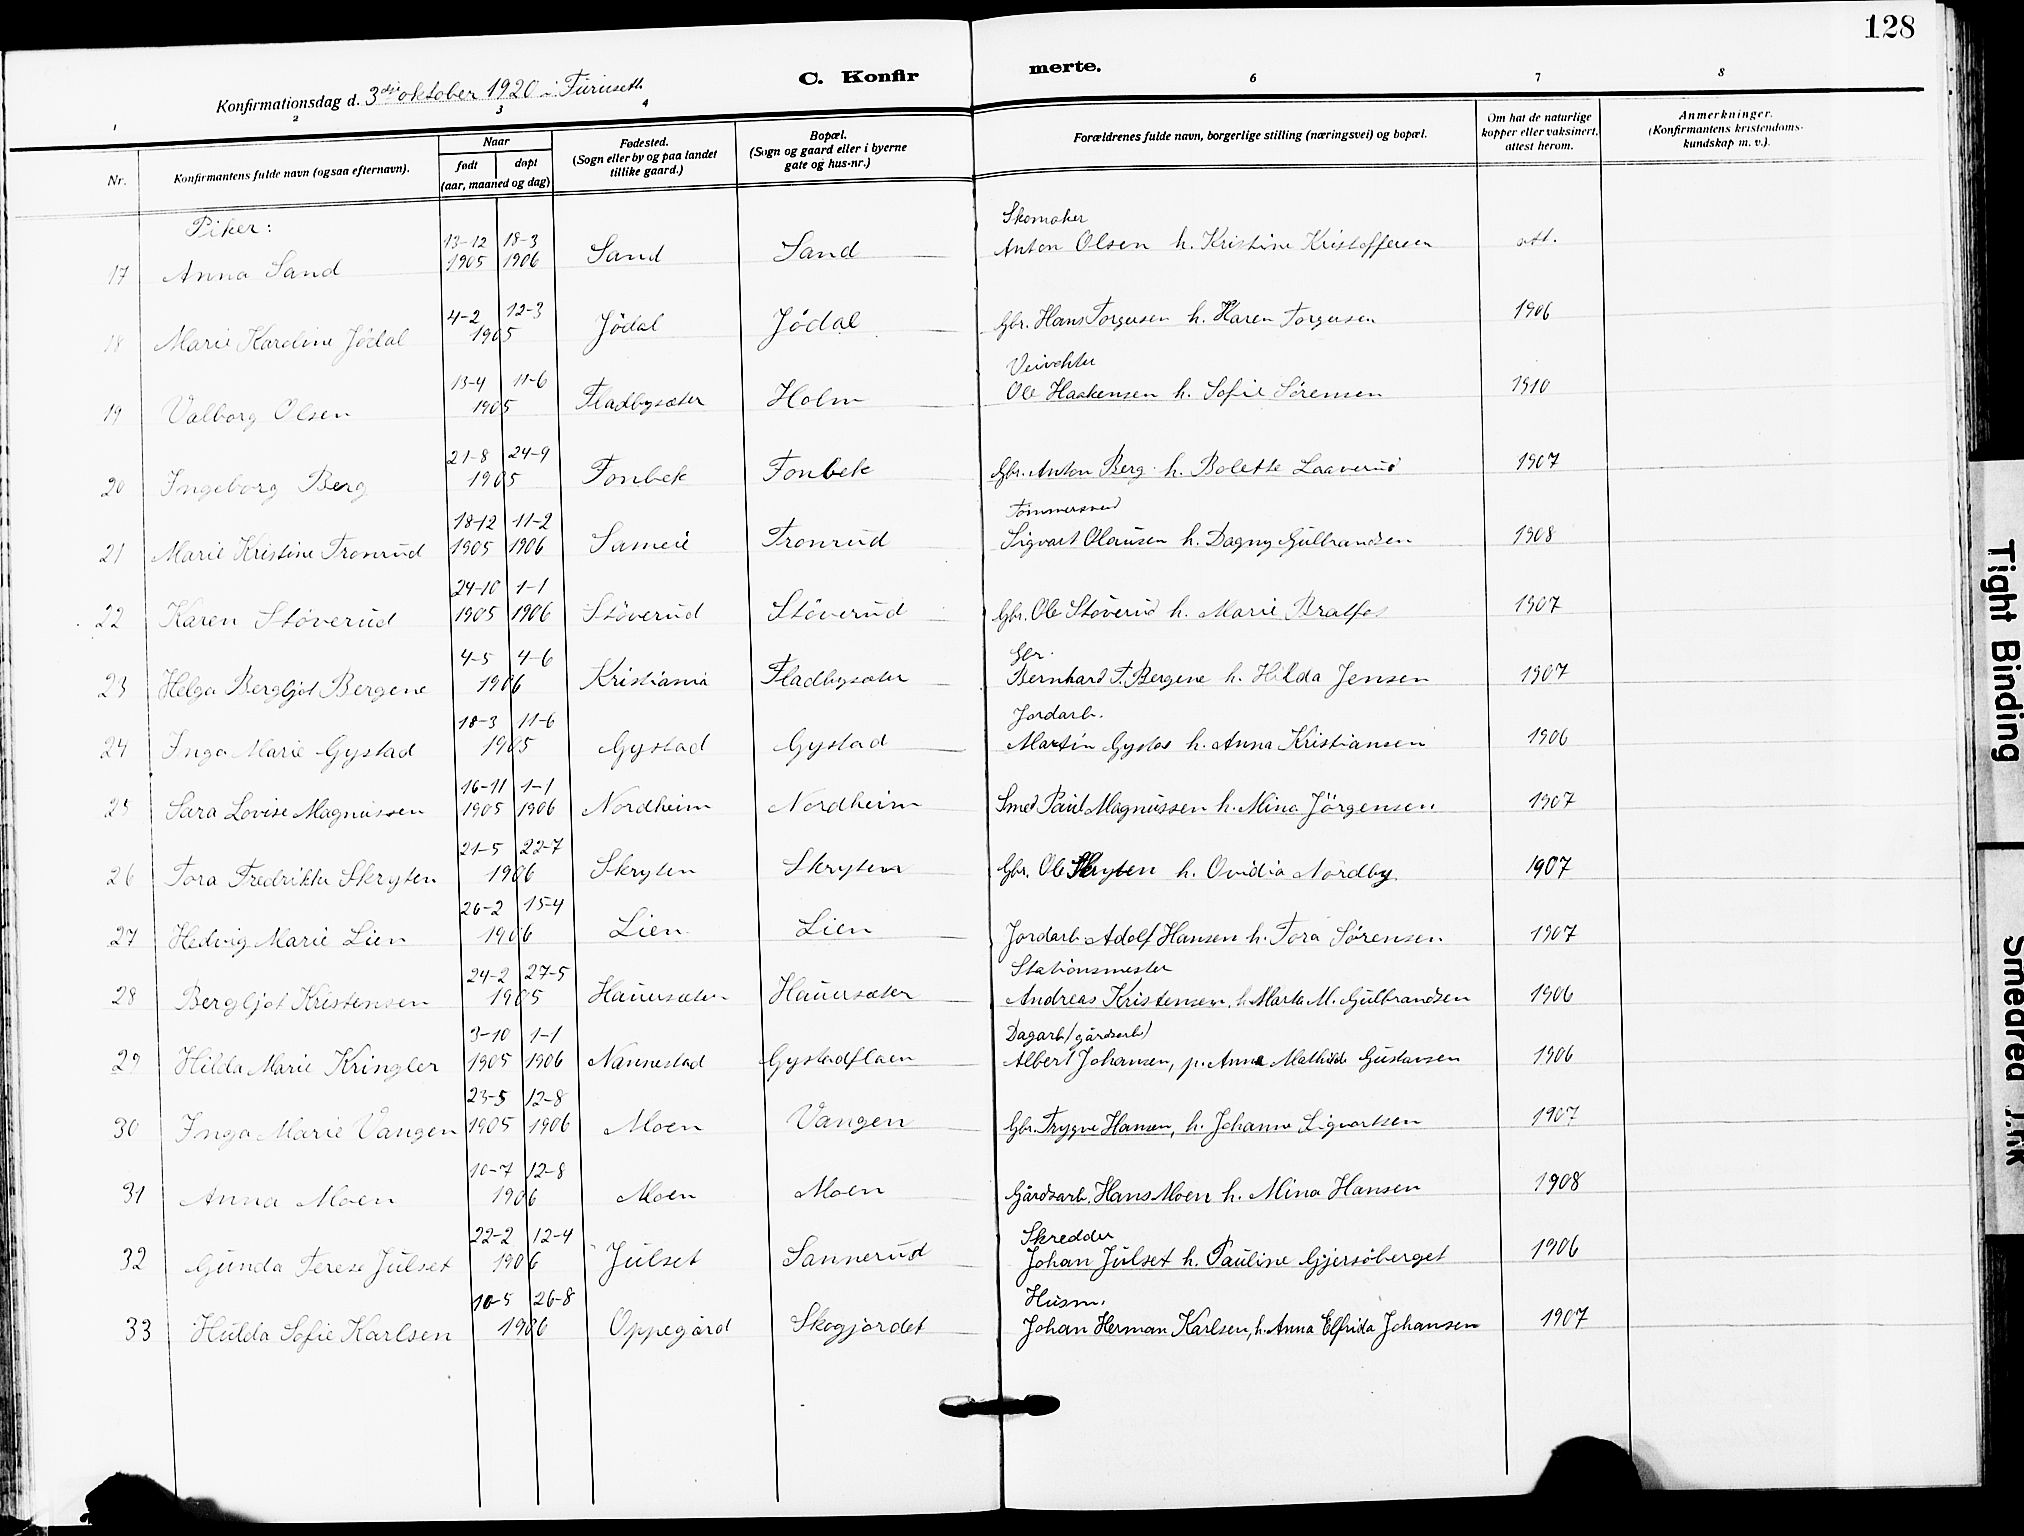 128
C. Konfirmerte.
Konfirmationsdag d. 3die oktober 1920 i Furuset
1 2 3 4 6 7 8
Nr. Konfirmantens fulde navn (ogsaa efternavn). Naar født døpt (aar, maaned og dag) Fødested. (Sogn eller by og paa landet tillike gaard.) Bopæl. (Sogn og gaard eller i byerne gate og hus-nr.) Forældrenes fulde navn, borgerlige stilling (næringsvei) og bopæl. Om hat de naturlige kopper eller vaksinert, attest herom. Anmerkninger. (Konfirmantens kristendoms-kundskap m. v.).
Piker:
17 Anna Sand 13-12 1905 18-3 1906 Sand Sand Skomaker Anton Olsen h. Kristine Kristoffersen att.
18 Marie Karoline Jødal 4-2 12-3 1905 Jødal Jødal Gbr. Hans Torgersen h. Karen Torgersen 1906
19 Valborg Olsen 13-4 11-6 1905 Fladbysæter Holm Veivokter Ole Haakensen h. Sofie Sørensen 1910
20 Ingeborg Berg 21-8 24-9 1905 Fonbek Fonbek Gbr. Anton Berg h. Bolette Laaverud 1907
21 Marie Kristine Tronrud 18-12 1905 11-2 1906 Sameie Tronrud Tømmersmed Sigvart Olausen h. Dagny Gulbrandsen 1908
22 Karen Støverud 24-10 1905 1-1 1906 Støverud Støverud Gbr. Ole Støverud h. Marie Bratfos 1907
23 Helga Bergljot Bergene 4-5 4-6 1906 Kristiania Fladbysæter Gbr. Bernhard T. Bergene h. Hilda Jensen 1907
24 Inga Marie Gystad 18-3 11-6 1905 Gystad Gystad Jordarb. Martin Gystad h. Anna Kristiansen 1906
25 Sara Lovise Magnussen 16-11 1905 1-1 1906 Nordheim Nordheim Smed Paul Magnussen h. Mina Jörgensen 1907
26 Tora Fredrikke Skryten 21-5 22-7 1906 Skryten Skryten Gbr. Ole Skryten h. Ovidia Nordby 1907
27 Hedvig Marie Lien 26-2 15-4 1906 Lien Lien Jordarb. Adolf Hansen h. Tora Sørensen 1907
28 Bergljot Kristensen 24-2 27-5 1905 Hauersæter Hauersæter Stationsmester Andreas Kristensen, h. Marta M. Gulbrandsen 1906
29 Hilda Marie Kringler 3-10 1905 1-1 1906 Nannestad Gystadflaen Dagarb. (gårdsarb.) Albert Johansen, p. Anna Mathilde Gustavsen 1906
30 Inga Marie Vangen 23-5 1905 12-8 1906 Moen Vangen Gbr. Trygve Hansen, h. Johanne Sigvartsen 1907
31 Anna Moen 10-7 12-8 1906 Moen Moen Gårdsarb. Hans Moen h. Mina Hansen 1908
32 Gunda Terese Julset 22-2 12-4 1906 Julset Sannerud Skredder Johan Julset h. Pauline Gjersöberget 1906
33 Hulda Sofie Karlsen 10-5 26-8 1906 Oppegård Skogjordet Husm. Johan Herman Karlsen, h. Anna Elfrida Johansen 1907
Tight Binding
Smeared Ink